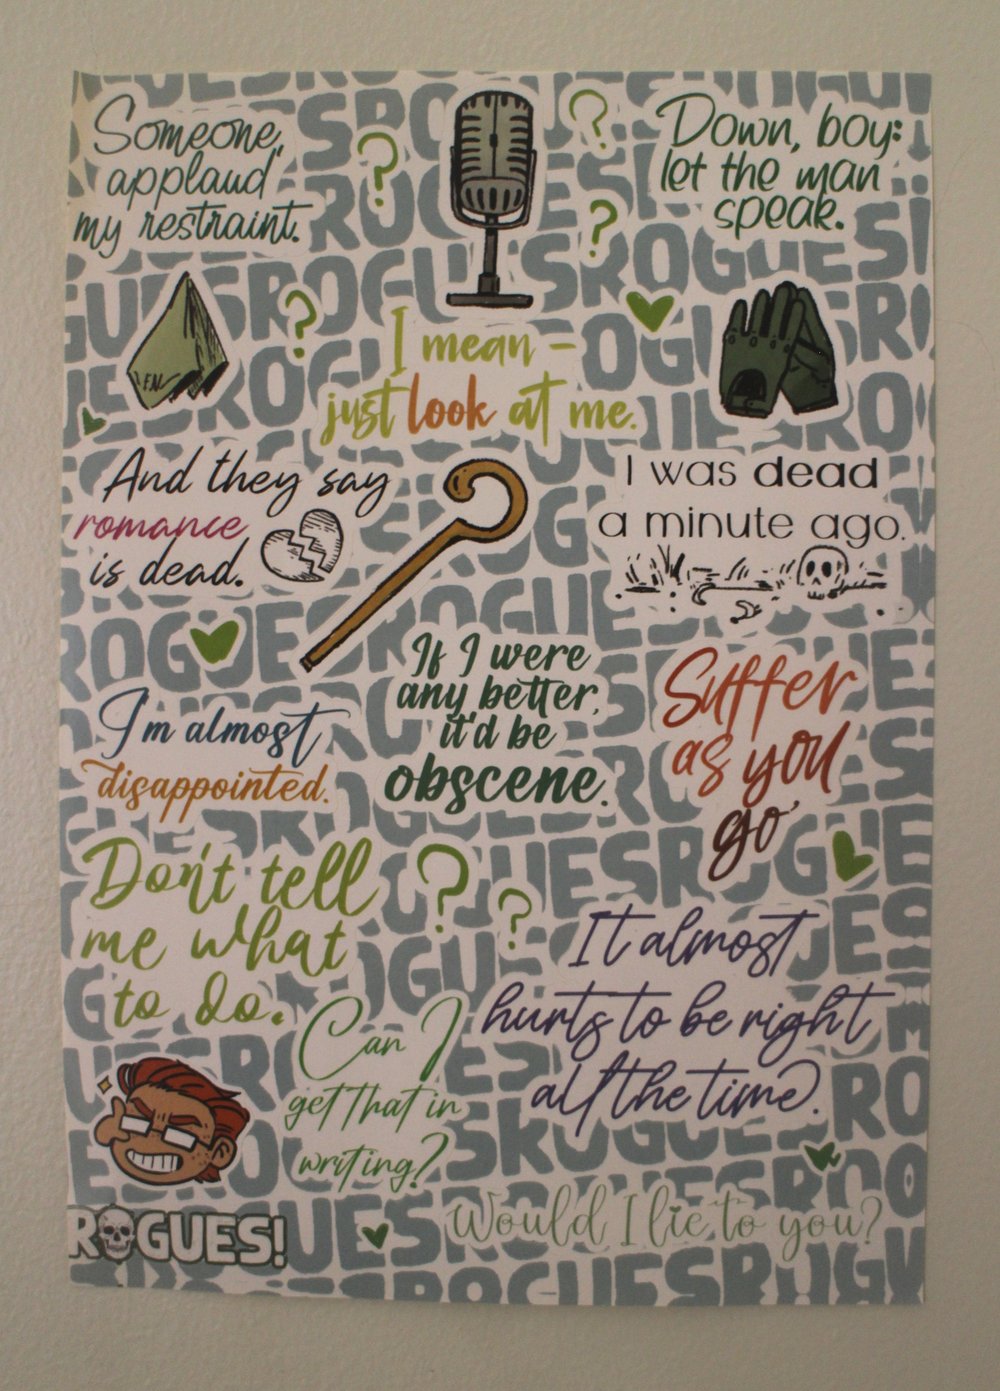 Someone,
applaud
my restraint.
Down, boy:
let the man
speak.
?
?
?
?
E.N.
I mean -
just look at me.
And they say
romance
is dead.
I was dead
a minute ago.
I'm almost
disappointed.
If I were
any better,
it'd be
obscene.
Suffer
as you
go
Don't tell
me what
to do.
?
?
It almost
hurts to be right
all the time.
Can I
get that in
writing?
ROGUES!
Would I lie to you?